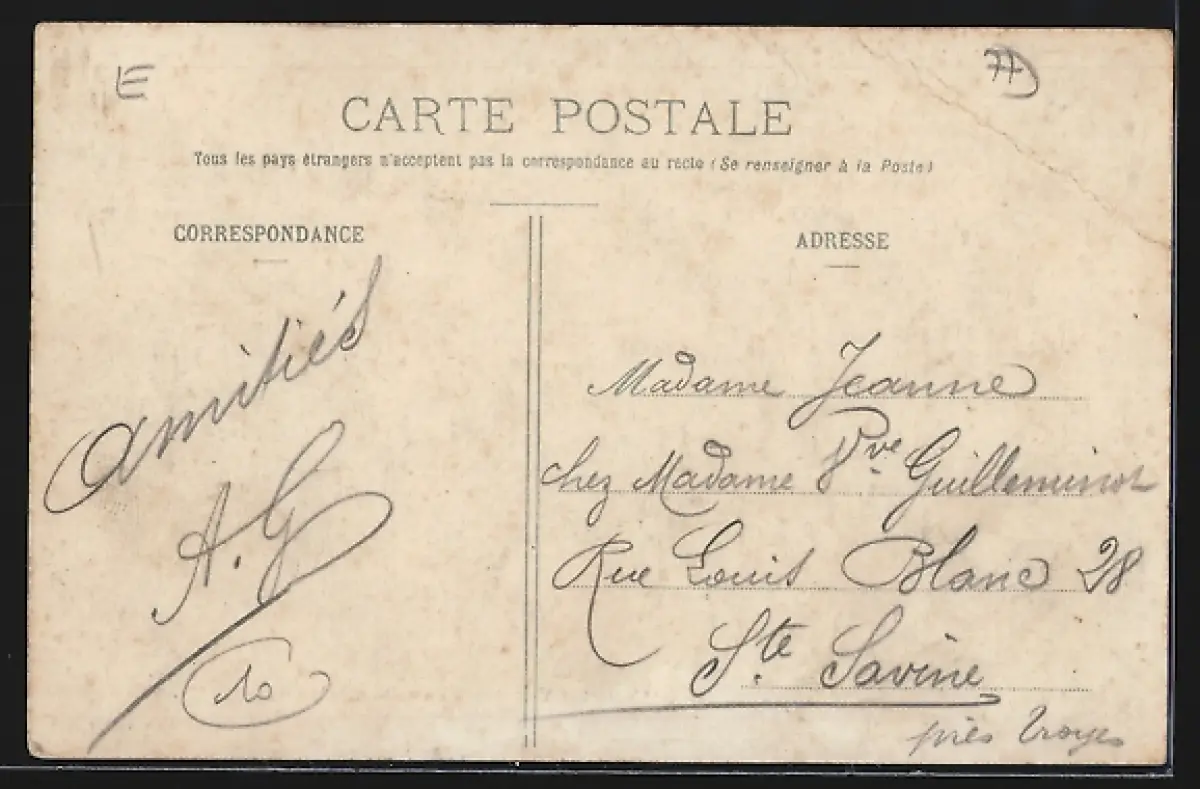 E
77
CARTE POSTALE
Tous les pays étrangers n'acceptent pas la correspondance au recto (Se renseigner à la Poste)
CORRESPONDANCE
amitiés
A. G
10
ADRESSE
Madame Jeanne
chez Madame Vve Guilleminot
Rue Louis Blanc 28
Ste Savine
près Troyes